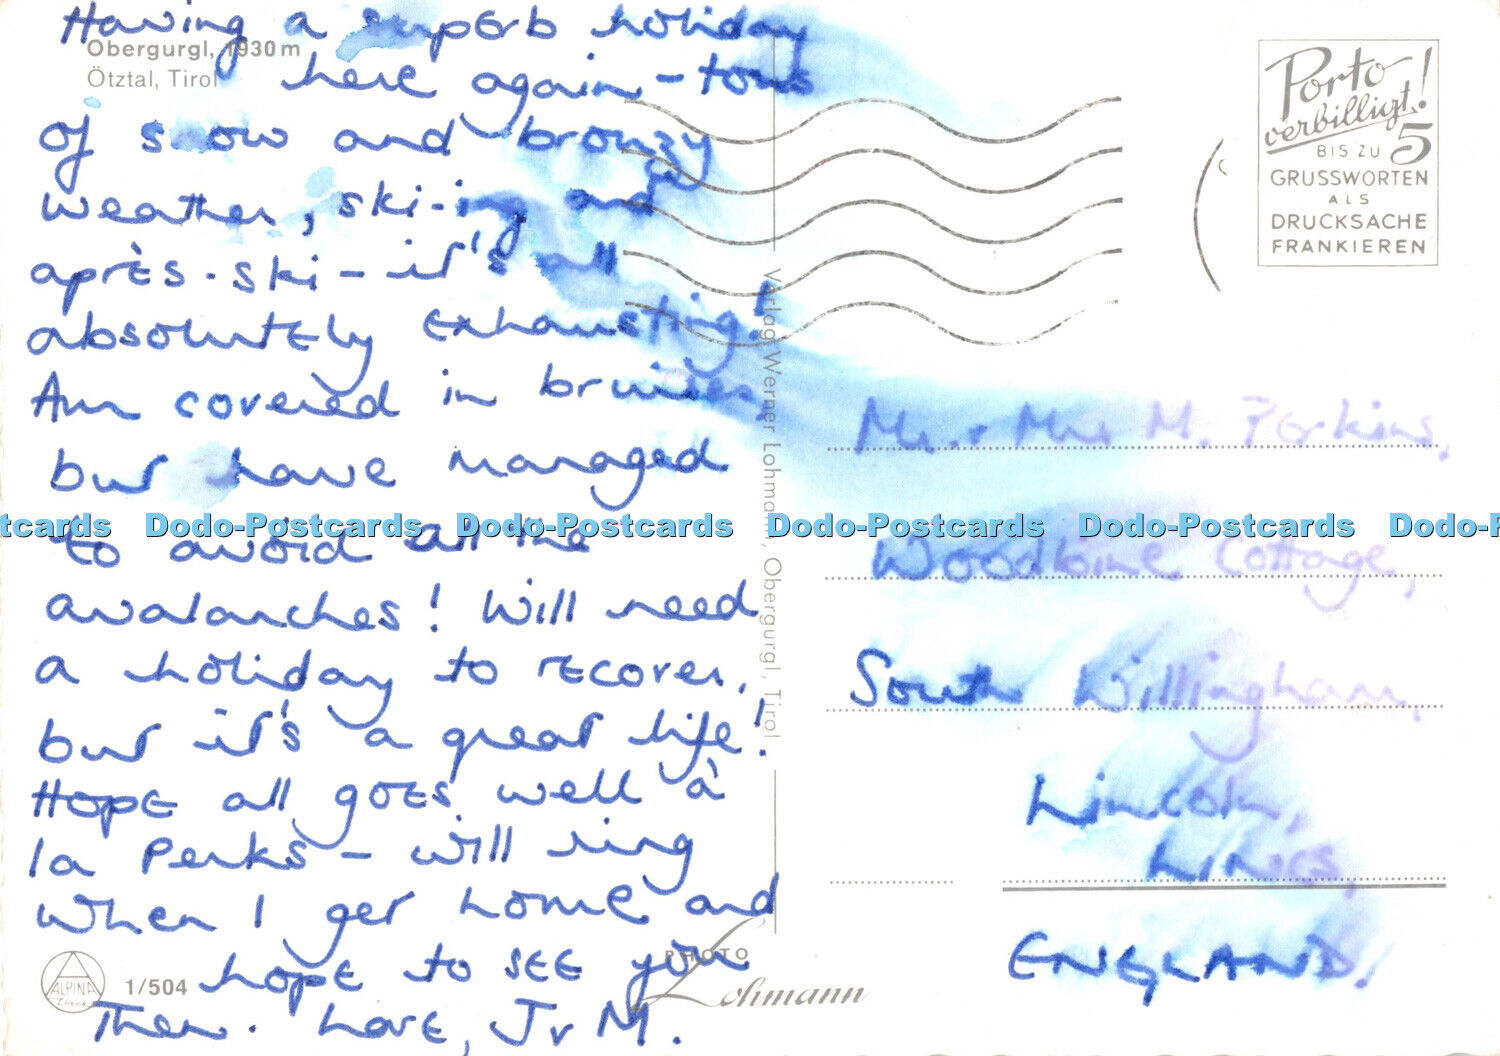 Obergurgl, 1930 m
Ötztal, Tirol
Having a superb holiday
here again - tons
of snow and bronzy
weather, ski-ing and
après-ski - it's all
absolutely exhausting!
Am covered in bruises,
but have managed
to avoid all the
avalanches! Will need
a holiday to recover,
but it's a great life!
Hope all goes well à
la Perks - will ring
when I get home and
hope to see you
then. Love, J & M.
Verlag Werner Lohmann, Obergurgl, Tirol
Porto
verbilligt!
BIS ZU 5
GRUSSWORTEN
ALS
DRUCKSACHE
FRANKIEREN
Mr. & Mrs M. Perkins,
Woodbine Cottage,
South Willingham,
Lincoln,
Lincs,
ENGLAND.
ALPINA
1/504
PHOTO
Lohmann
Dodo-Postcards Dodo-Postcards Dodo-Postcards Dodo-Postcards